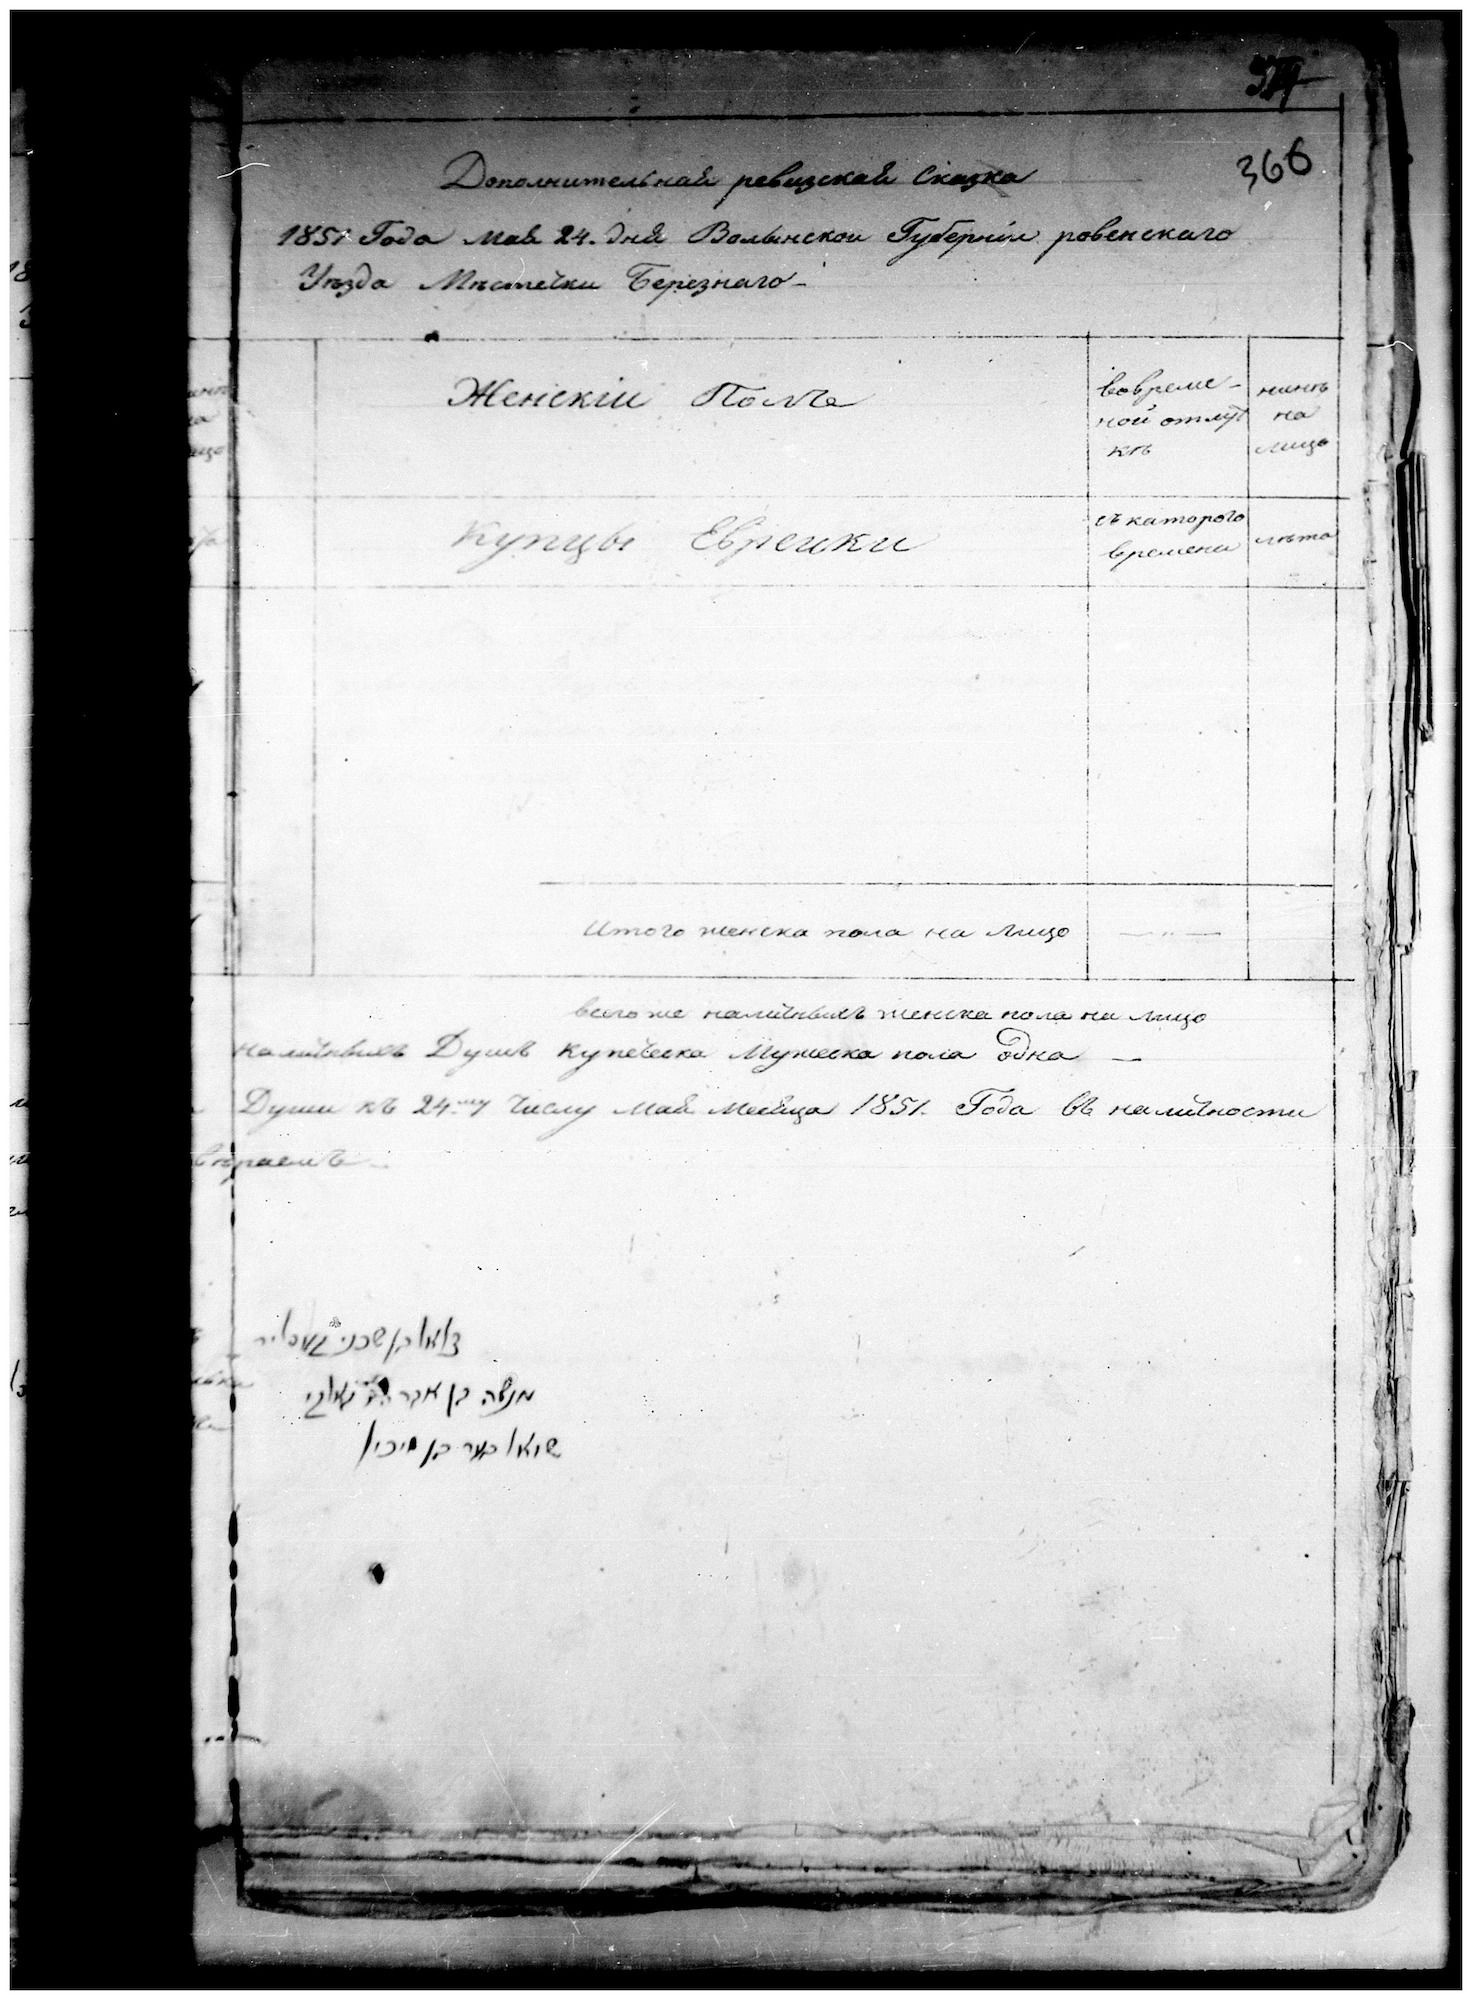 366
Дополнительная ревизская Сказка
1851 Года Мая 24. дня Волынскои Губерніи ровенскаго
Уѣзда Мѣстечки Березнаго
Женскіи Полъ
вовреме-
ной отлуч
кѣ
нинѣ
на
лицо
Купцы Евреики
съ каторого
времена
лѣта
Итого женска пола на лицо
всего же наличныхъ женска пола на лицо
наличныхъ Душъ купеческа Мужеска пола одна
Души къ 24му числу Мая Месяца 1851. Года въ наличности
מנשה בן אבר
שואל בער בן